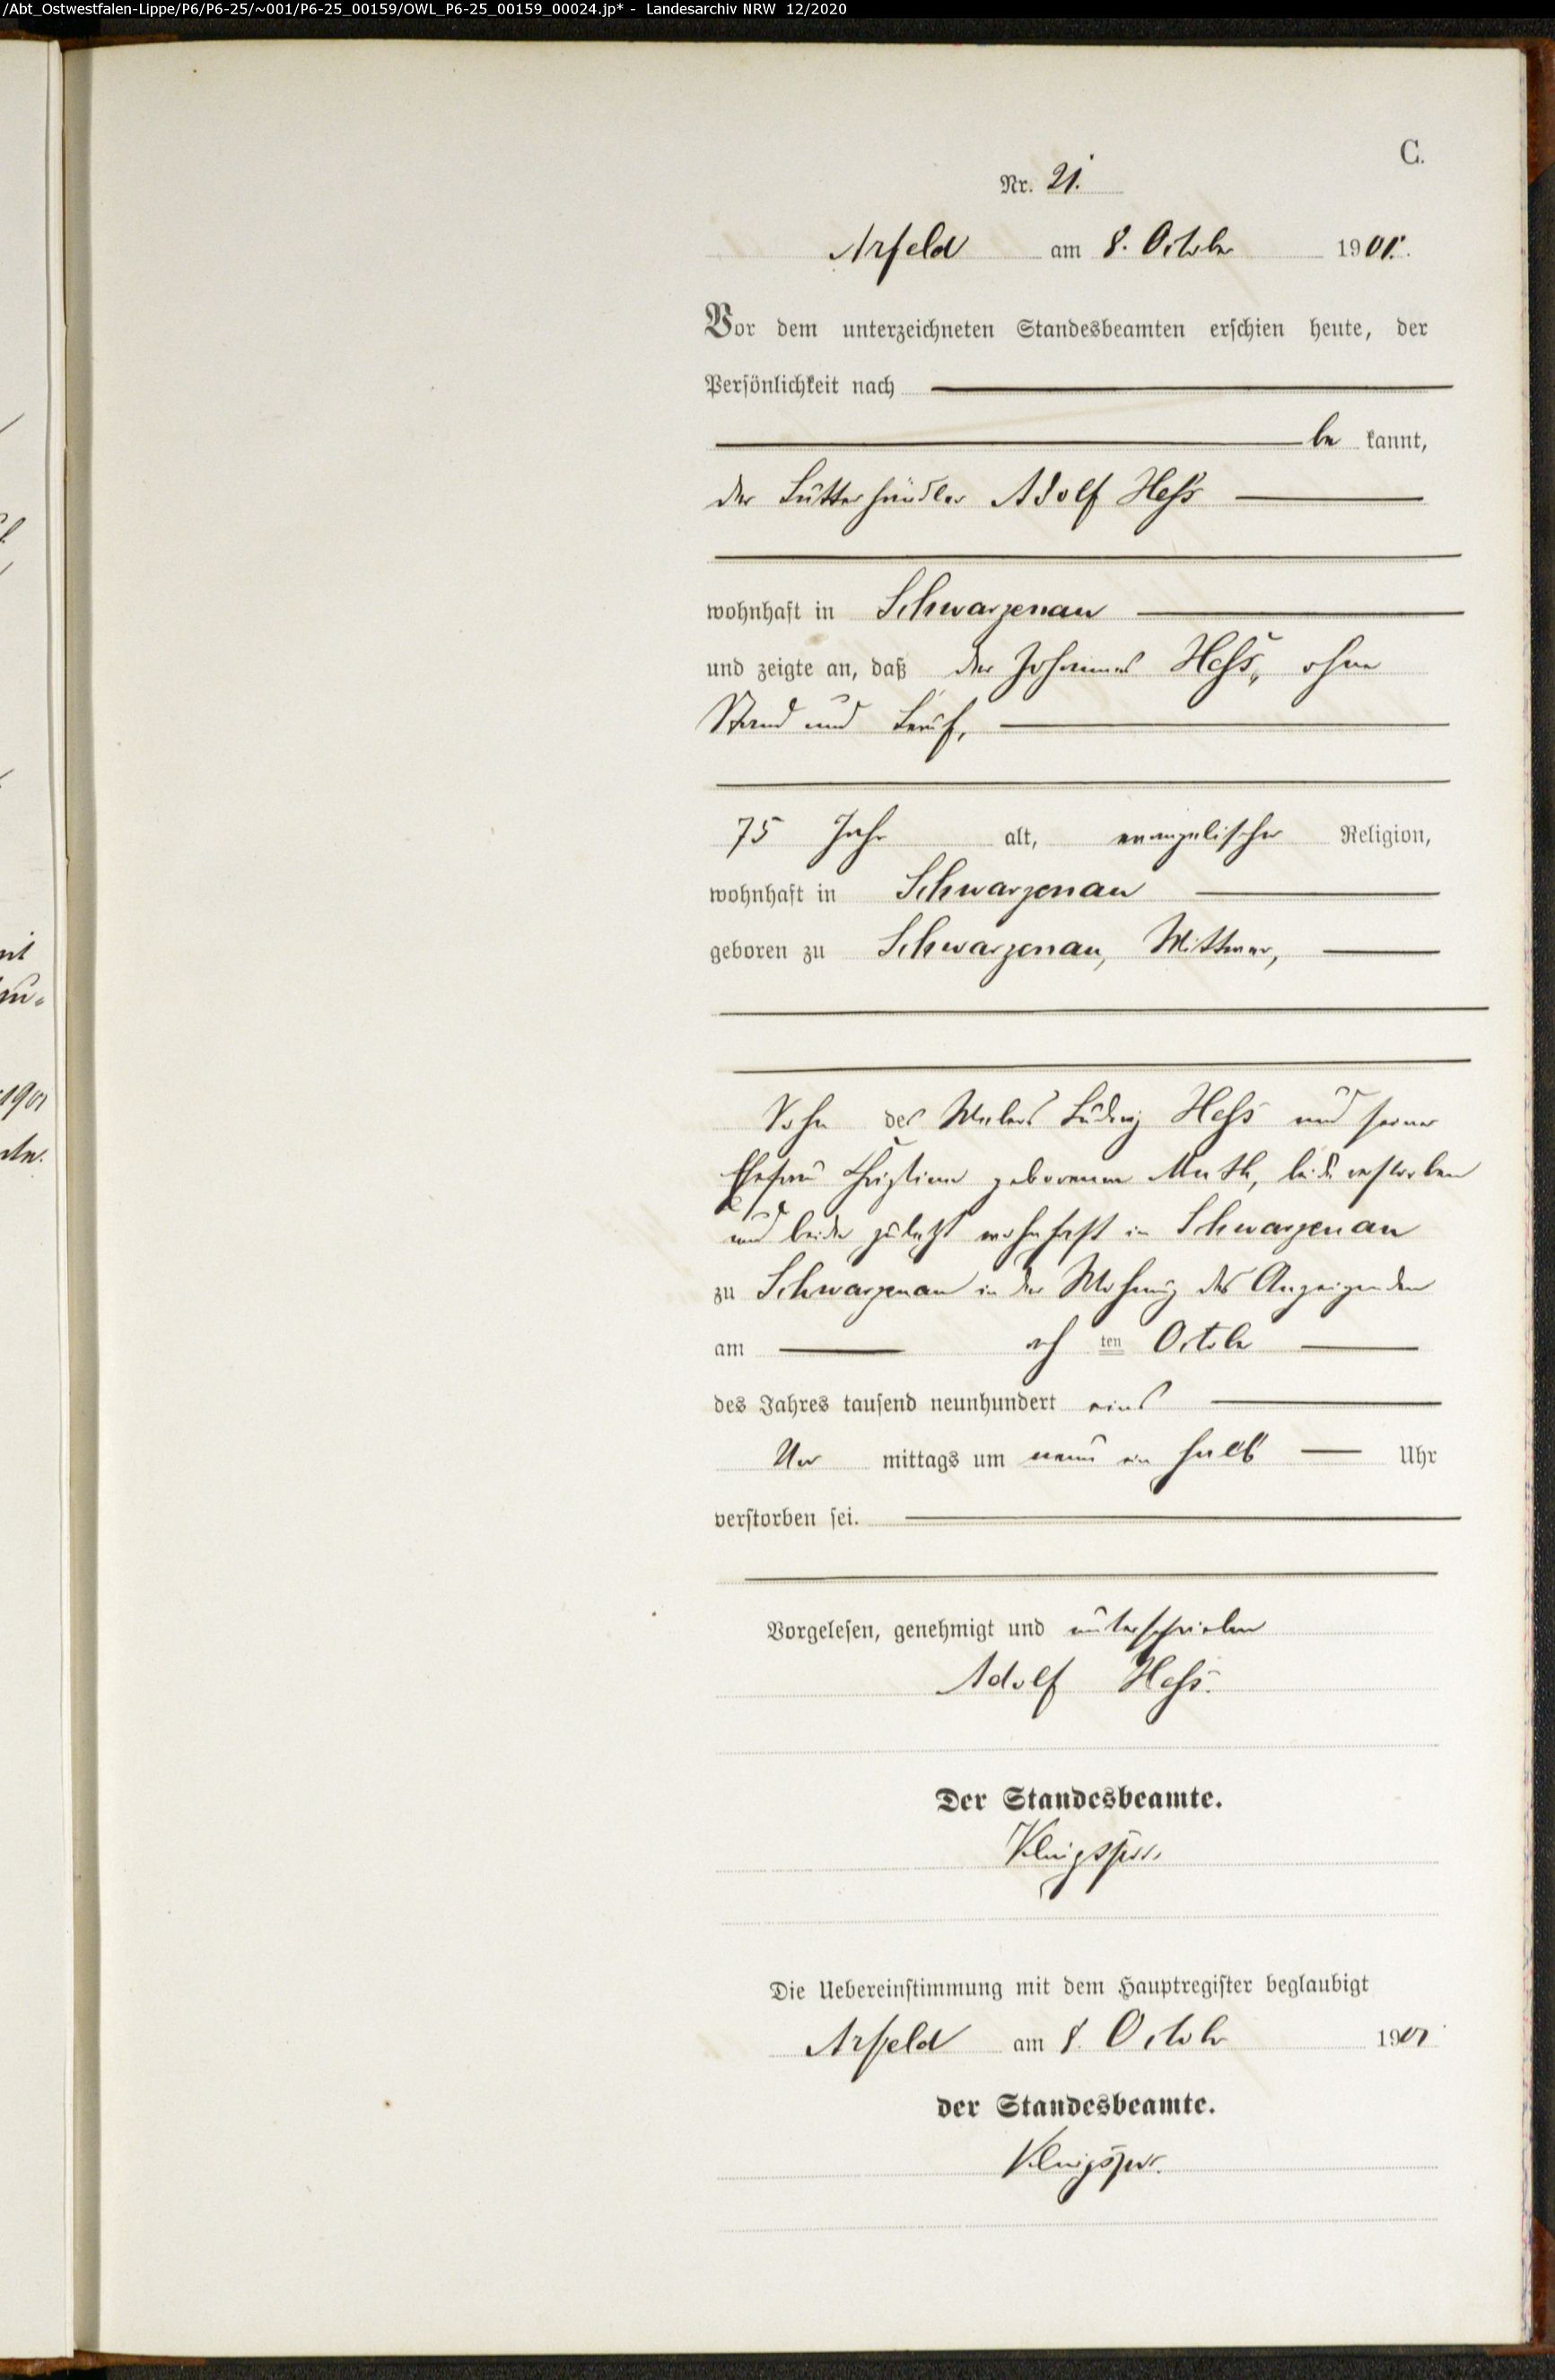 /Abt_Ostwestfalen-Lippe/P6/P6-25/~001/P6-25_00159/OWL_P6-25_00159_00024.jp* - Landesarchiv NRW 12/2020
C.
Nr. 21.
Arfeld am 8. October 1901.
Vor dem unterzeichneten Standesbeamten erschien heute, der
Persönlichkeit nach
be kannt,
der Adolf Heß
wohnhaft in Schwarzenau
und zeigte an, daß der Johannes Heß, ohne
Stand und Beruf,
75 Jahr alt, evangelischer Religion,
wohnhaft in Schwarzenau
geboren zu Schwarzenau, Wittwer,
Sohn des Ludwig Heß und seiner
Ehefrau Christine geborenen Muth, beide verstorben
und beide zuletzt wohnhaft in Schwarzenau
zu Schwarzenau in der Wohnung des Anzeigenden
am ach ten October
des Jahres tausend neunhundert eins
Vor mittags um neun ein halb Uhr
verstorben sei.
Vorgelesen, genehmigt und unterschrieben
Adolf Heß.
Der Standesbeamte.
Die Uebereinstimmung mit dem Hauptregister beglaubigt
Arfeld am 8. October 1901
der Standesbeamte.